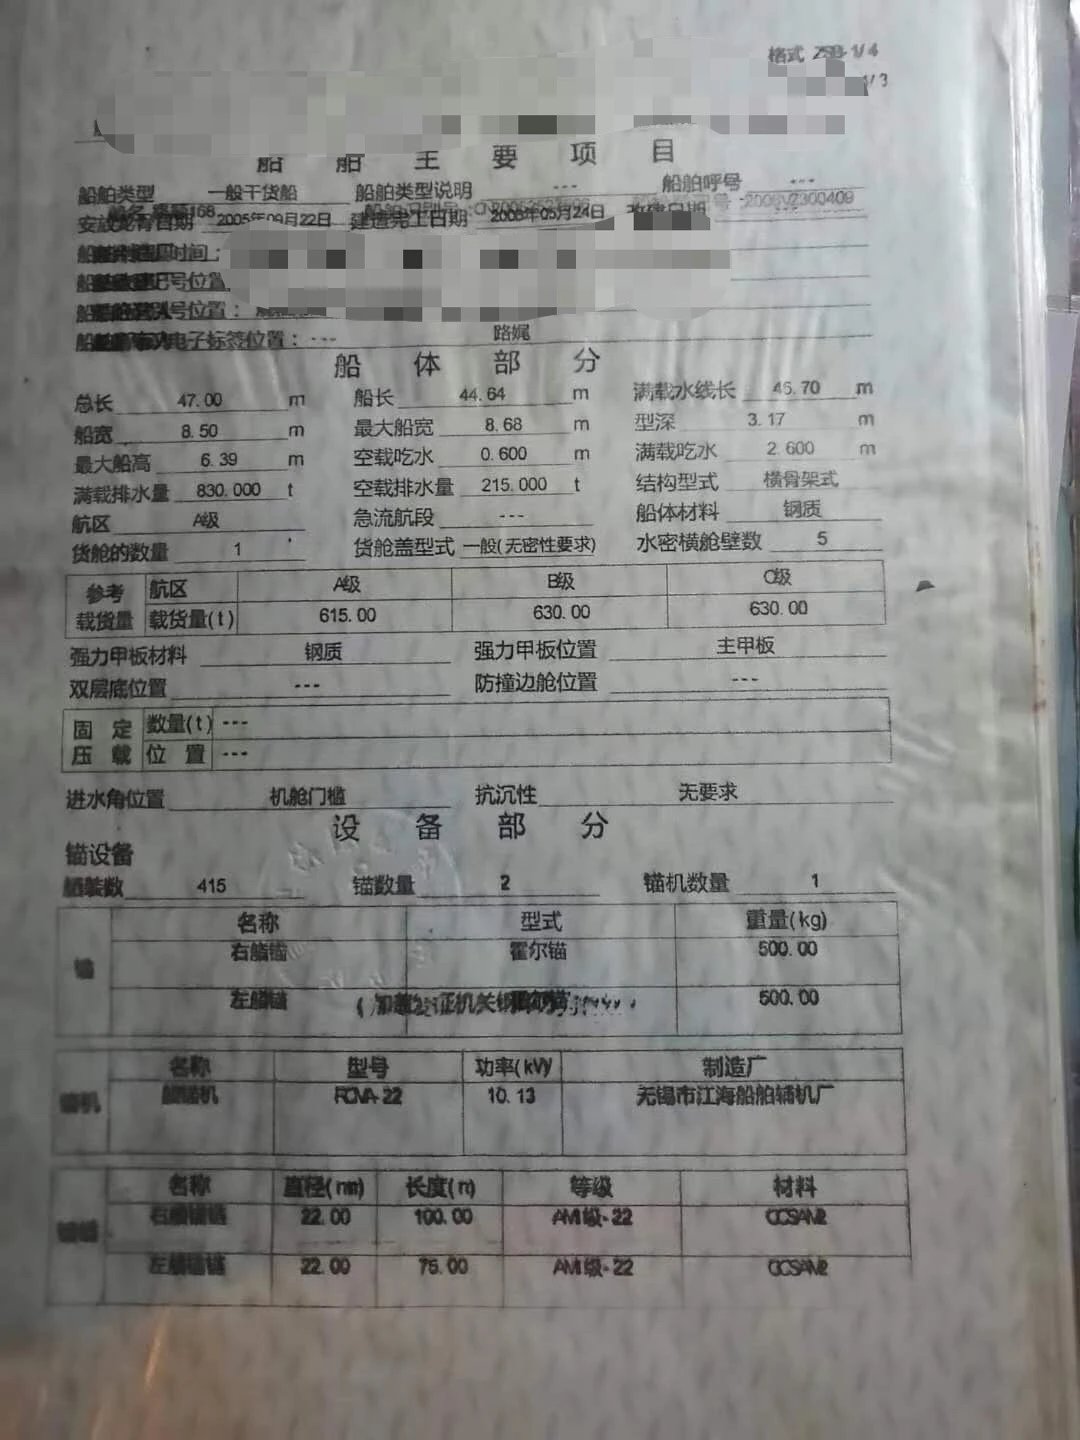 格式
1/3
船舶主要项目
船舶类型 一般干货船 船舶类型说明 --- 船舶呼号 ---
安放龙骨日期 2005年09月22日 建造完工日期 改建日期
时间：
号位置
号位置：
电子标签位置：---
路娓
船体部分
总长 47.00 m 船长 44.64 m 满载水线长 45.70 m
船宽 8.50 m 最大船宽 8.68 m 型深 3.17 m
最大船高 6.39 m 空载吃水 0.600 m 满载吃水 2.600 m
满载排水量 830.000 t 空载排水量 215.000 t 结构型式 横骨架式
航区 A级 急流航段 --- 船体材料 钢质
货舱的数量 1 货舱盖型式 一般(无密性要求) 水密横舱壁数 5
参考 航区 A级 B级 C级
载货量 载货量(t) 615.00 630.00 630.00
强力甲板材料 钢质 强力甲板位置 主甲板
双层底位置 --- 防撞边舱位置 ---
固定 数量(t) ---
压载 位置 ---
进水角位置 机舱门槛 抗沉性 无要求
设备部分
锚设备
舾装数 415 锚数量 2 锚机数量 1
名称 型式 重量(kg)
锚 右艏锚 霍尔锚 500.00
左艏锚 500.00
名称 型号 功率(kW) 制造厂
10.13 无锡市江海船舶辅机厂
名称 直径(mm) 长度(m) 等级 材料
右艏锚链 22.00 100.00 AM1级-22 CCSAM2
左艏锚链 22.00 75.00 AM1级-22 CCSAM2